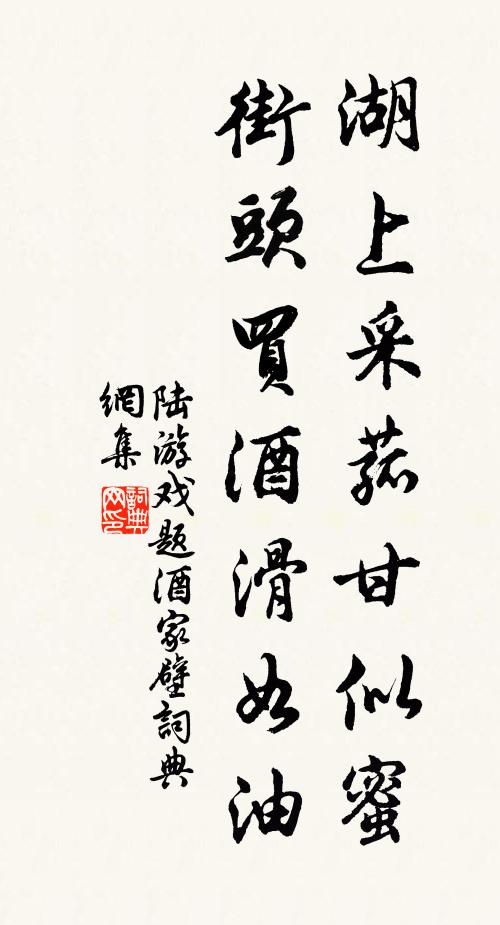 湖上采菰甘似蜜
街頭買酒滑如油
陆游戏题酒家壁詞典
網集
詞典網印